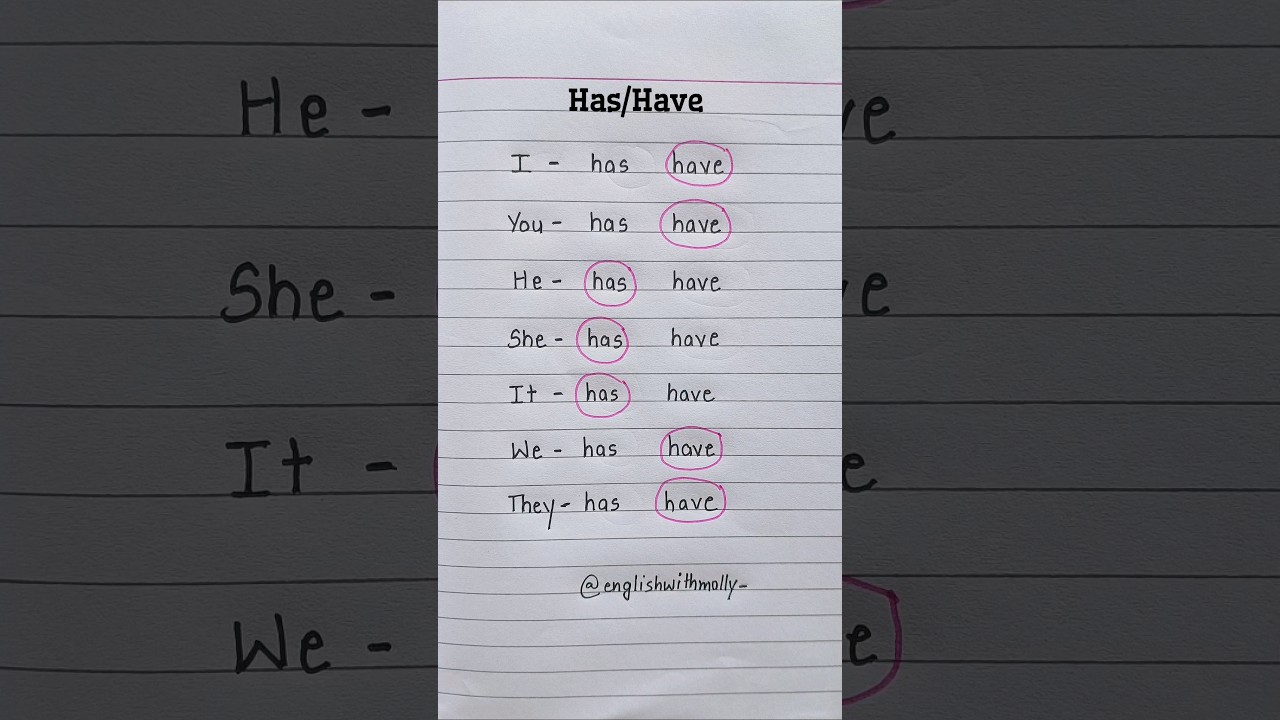 Has/Have
I - has have
You - has have
He - has have
She - has have
It - has have
We - has have
They - has have
@englishwithmolly_
He -
She -
It -
We -